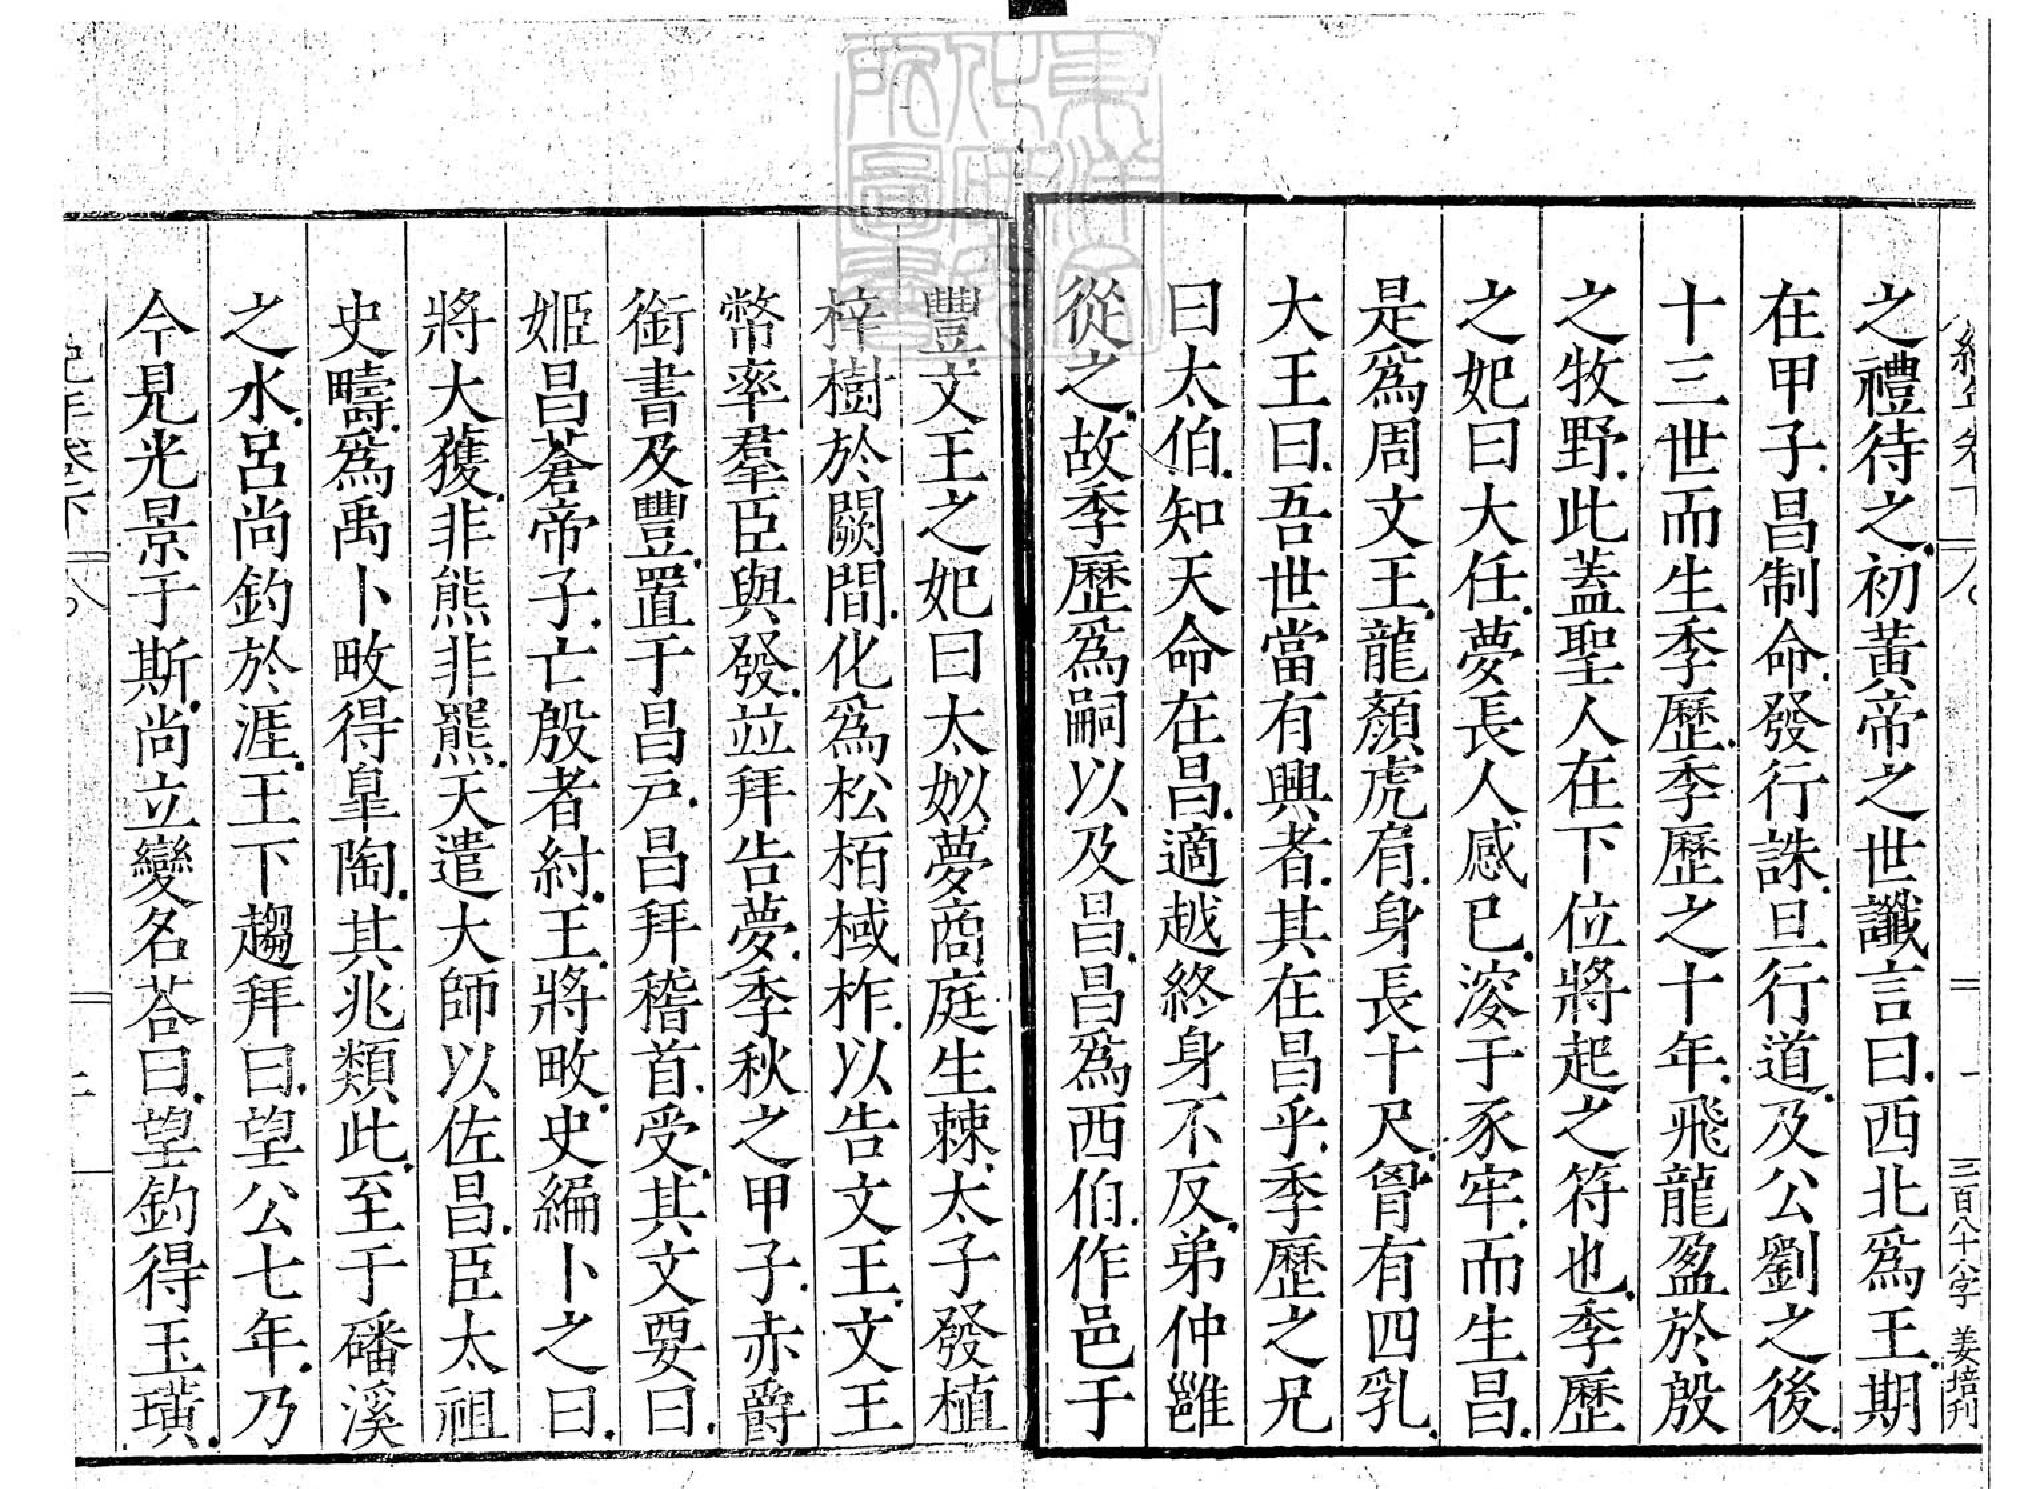 紀年卷下
一
三百八十八字 姜培刋
之禮待之初黃帝之世讖言曰西北爲王期
在甲子昌制命發行誅旦行道及公劉之後
十三世而生季歷季歷之十年飛龍盈於殷
之牧野此蓋聖人在下位將起之符也季歷
之妃曰大任夢長人感巳溲于豕牢而生昌
是爲周文王龍顏虎肩身長十尺胷有四乳
大王曰吾世當有興者其在昌乎季歷之兄
曰太伯知天命在昌適越終身不反弟仲雝
從之故季歷爲嗣以及昌昌爲西伯作邑于
豐文王之妃曰太姒夢商庭生棘太子發植
梓樹於闕間化爲松栢棫柞以告文王文王
幣率羣臣與發並拜告夢季秋之甲子赤爵
銜書及豐置于昌戸昌拜稽首受其文要曰
姬昌蒼帝子亡殷者紂王將畋史編卜之曰
將大獲非熊非羆天遣大師以佐昌臣太祖
史疇爲禹卜畋得臯陶其兆類此至于磻溪
之水呂尚釣於涯王下趨拜曰望公七年乃
今見光景于斯尚立變名荅曰望釣得玉璜
紀年卷下
二